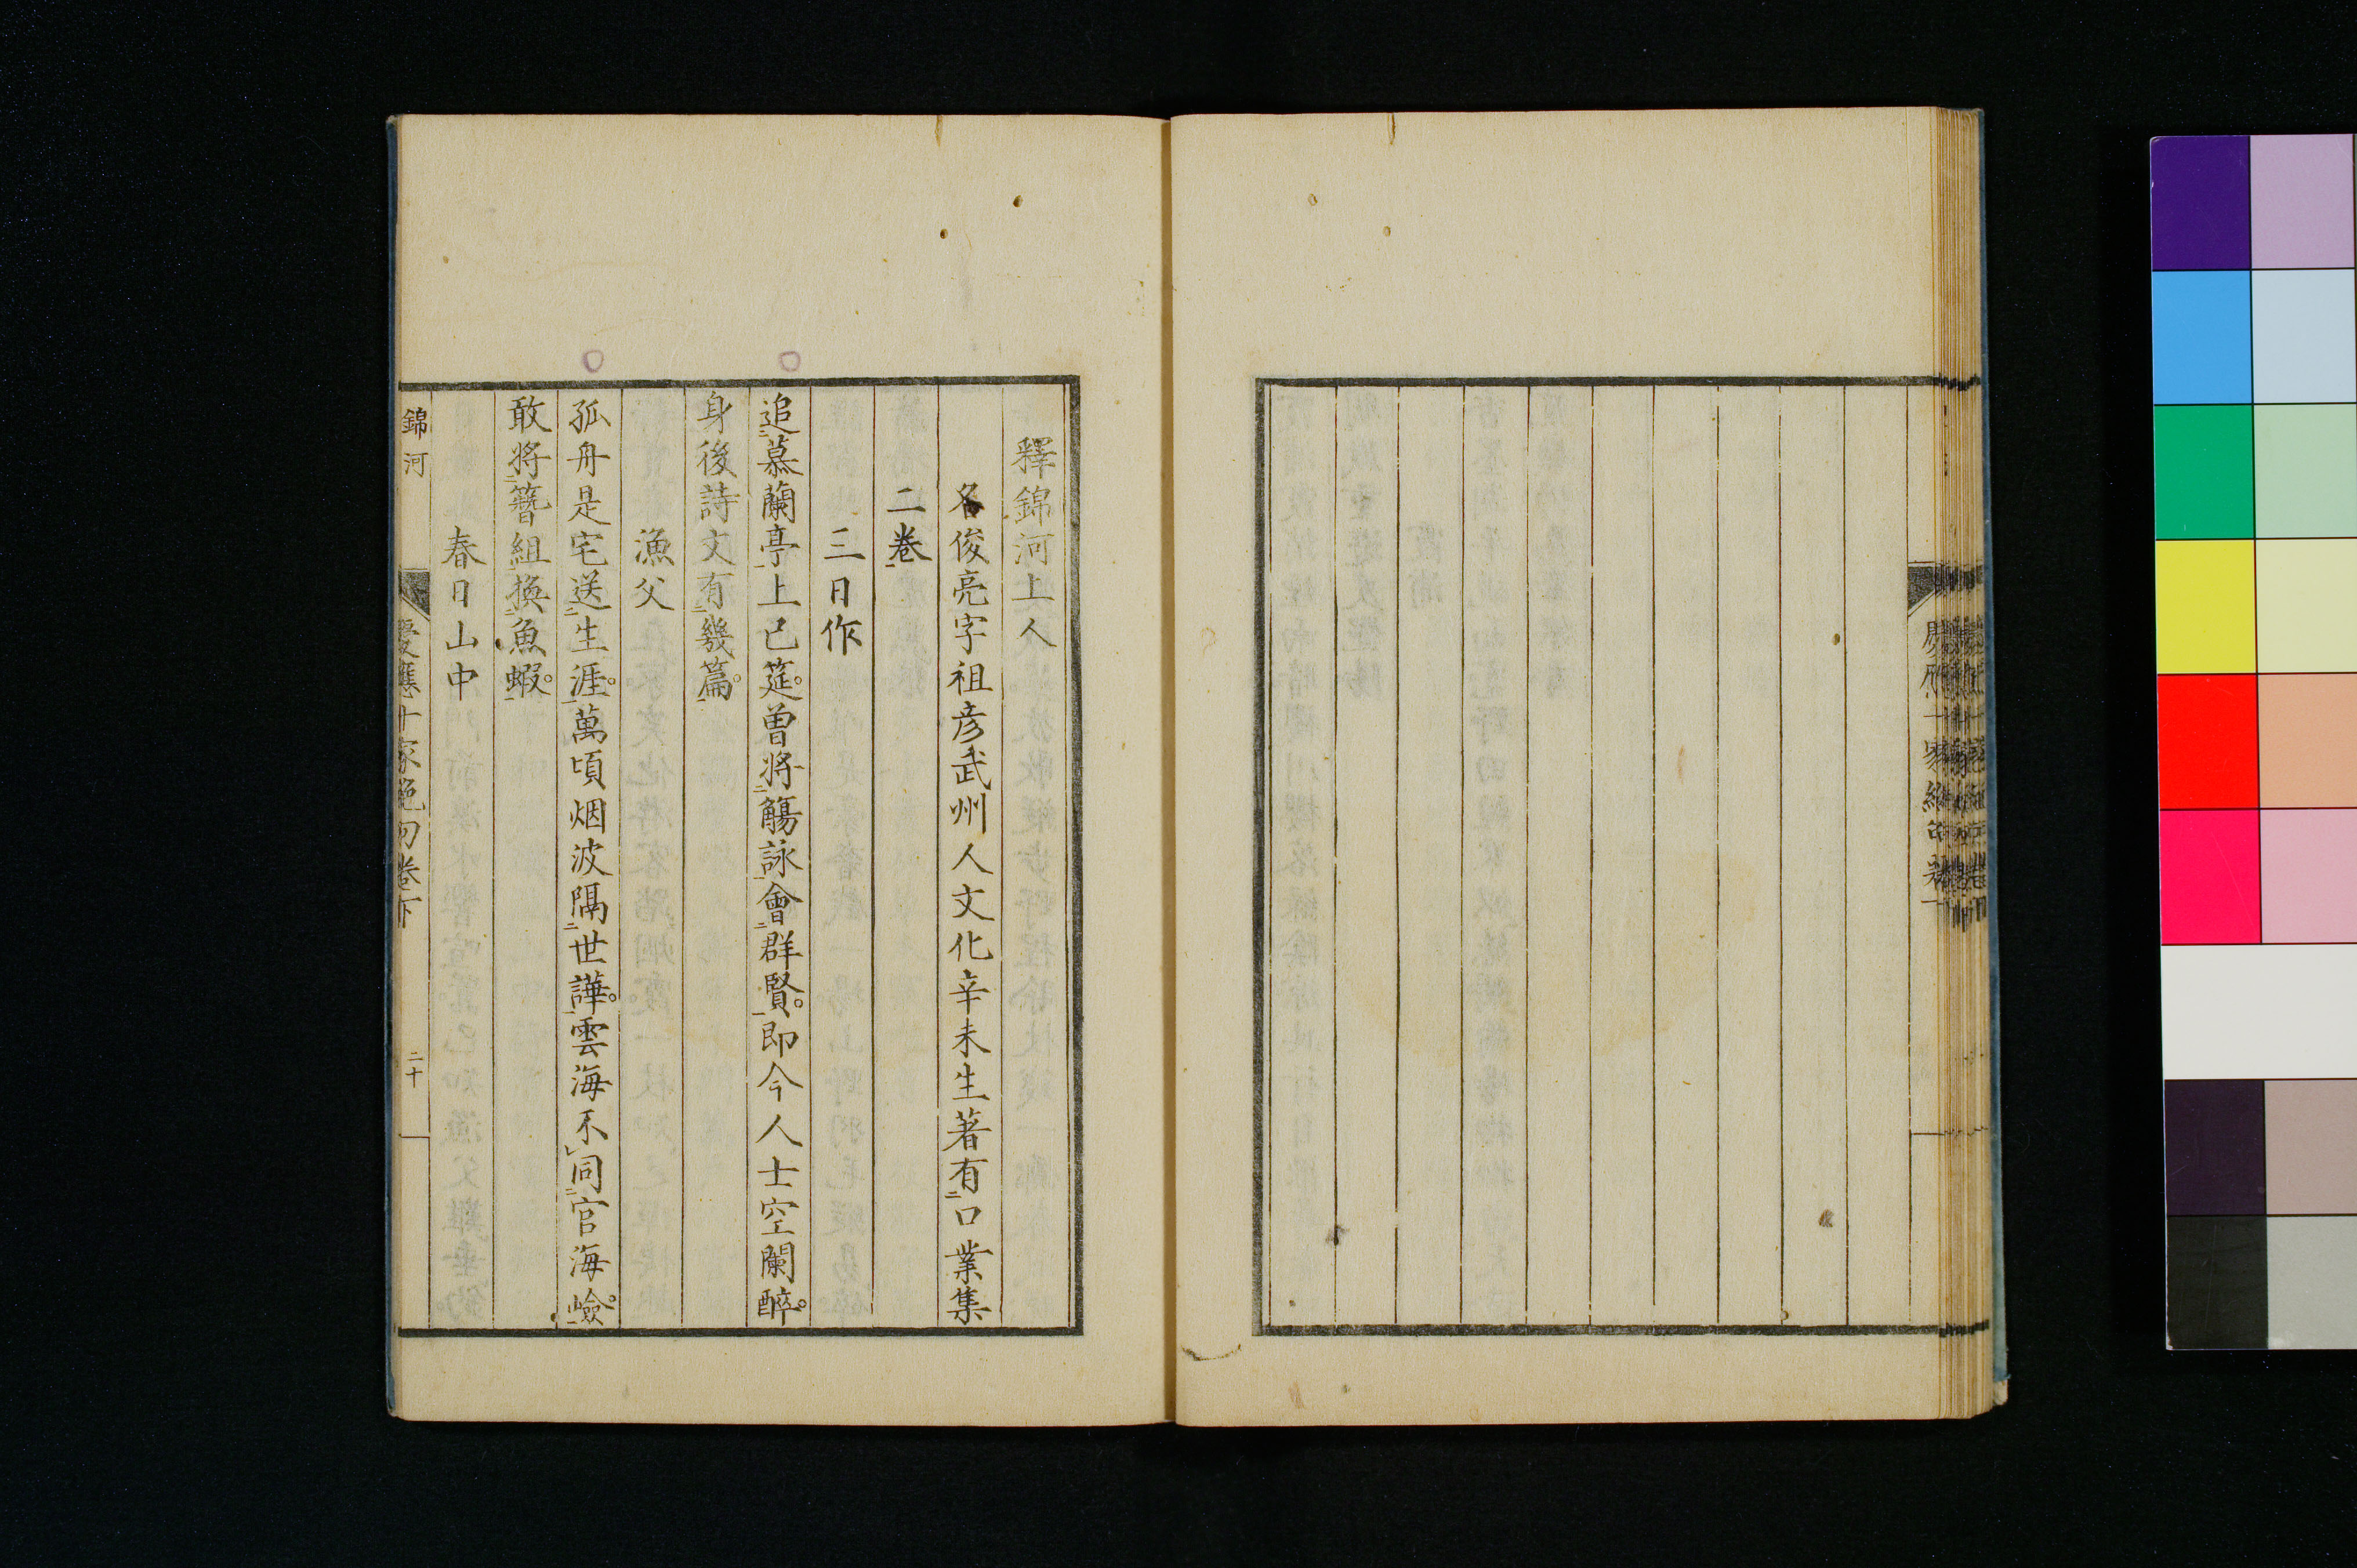 釋錦河上人
名俊亮字祖彦武州人文化辛未生著有口業集
二卷
三日作
追慕蘭亭上已筵。曽將觴詠會群賢。即今人士空闌醉。
身後詩文有幾篇。
漁父
孤舟是宅送生涯。萬頃烟波隔世譁。雲海不同官海嶮。
敢將簪組換魚蝦。
春日山中
錦河
慶應十家絶句卷下
二十